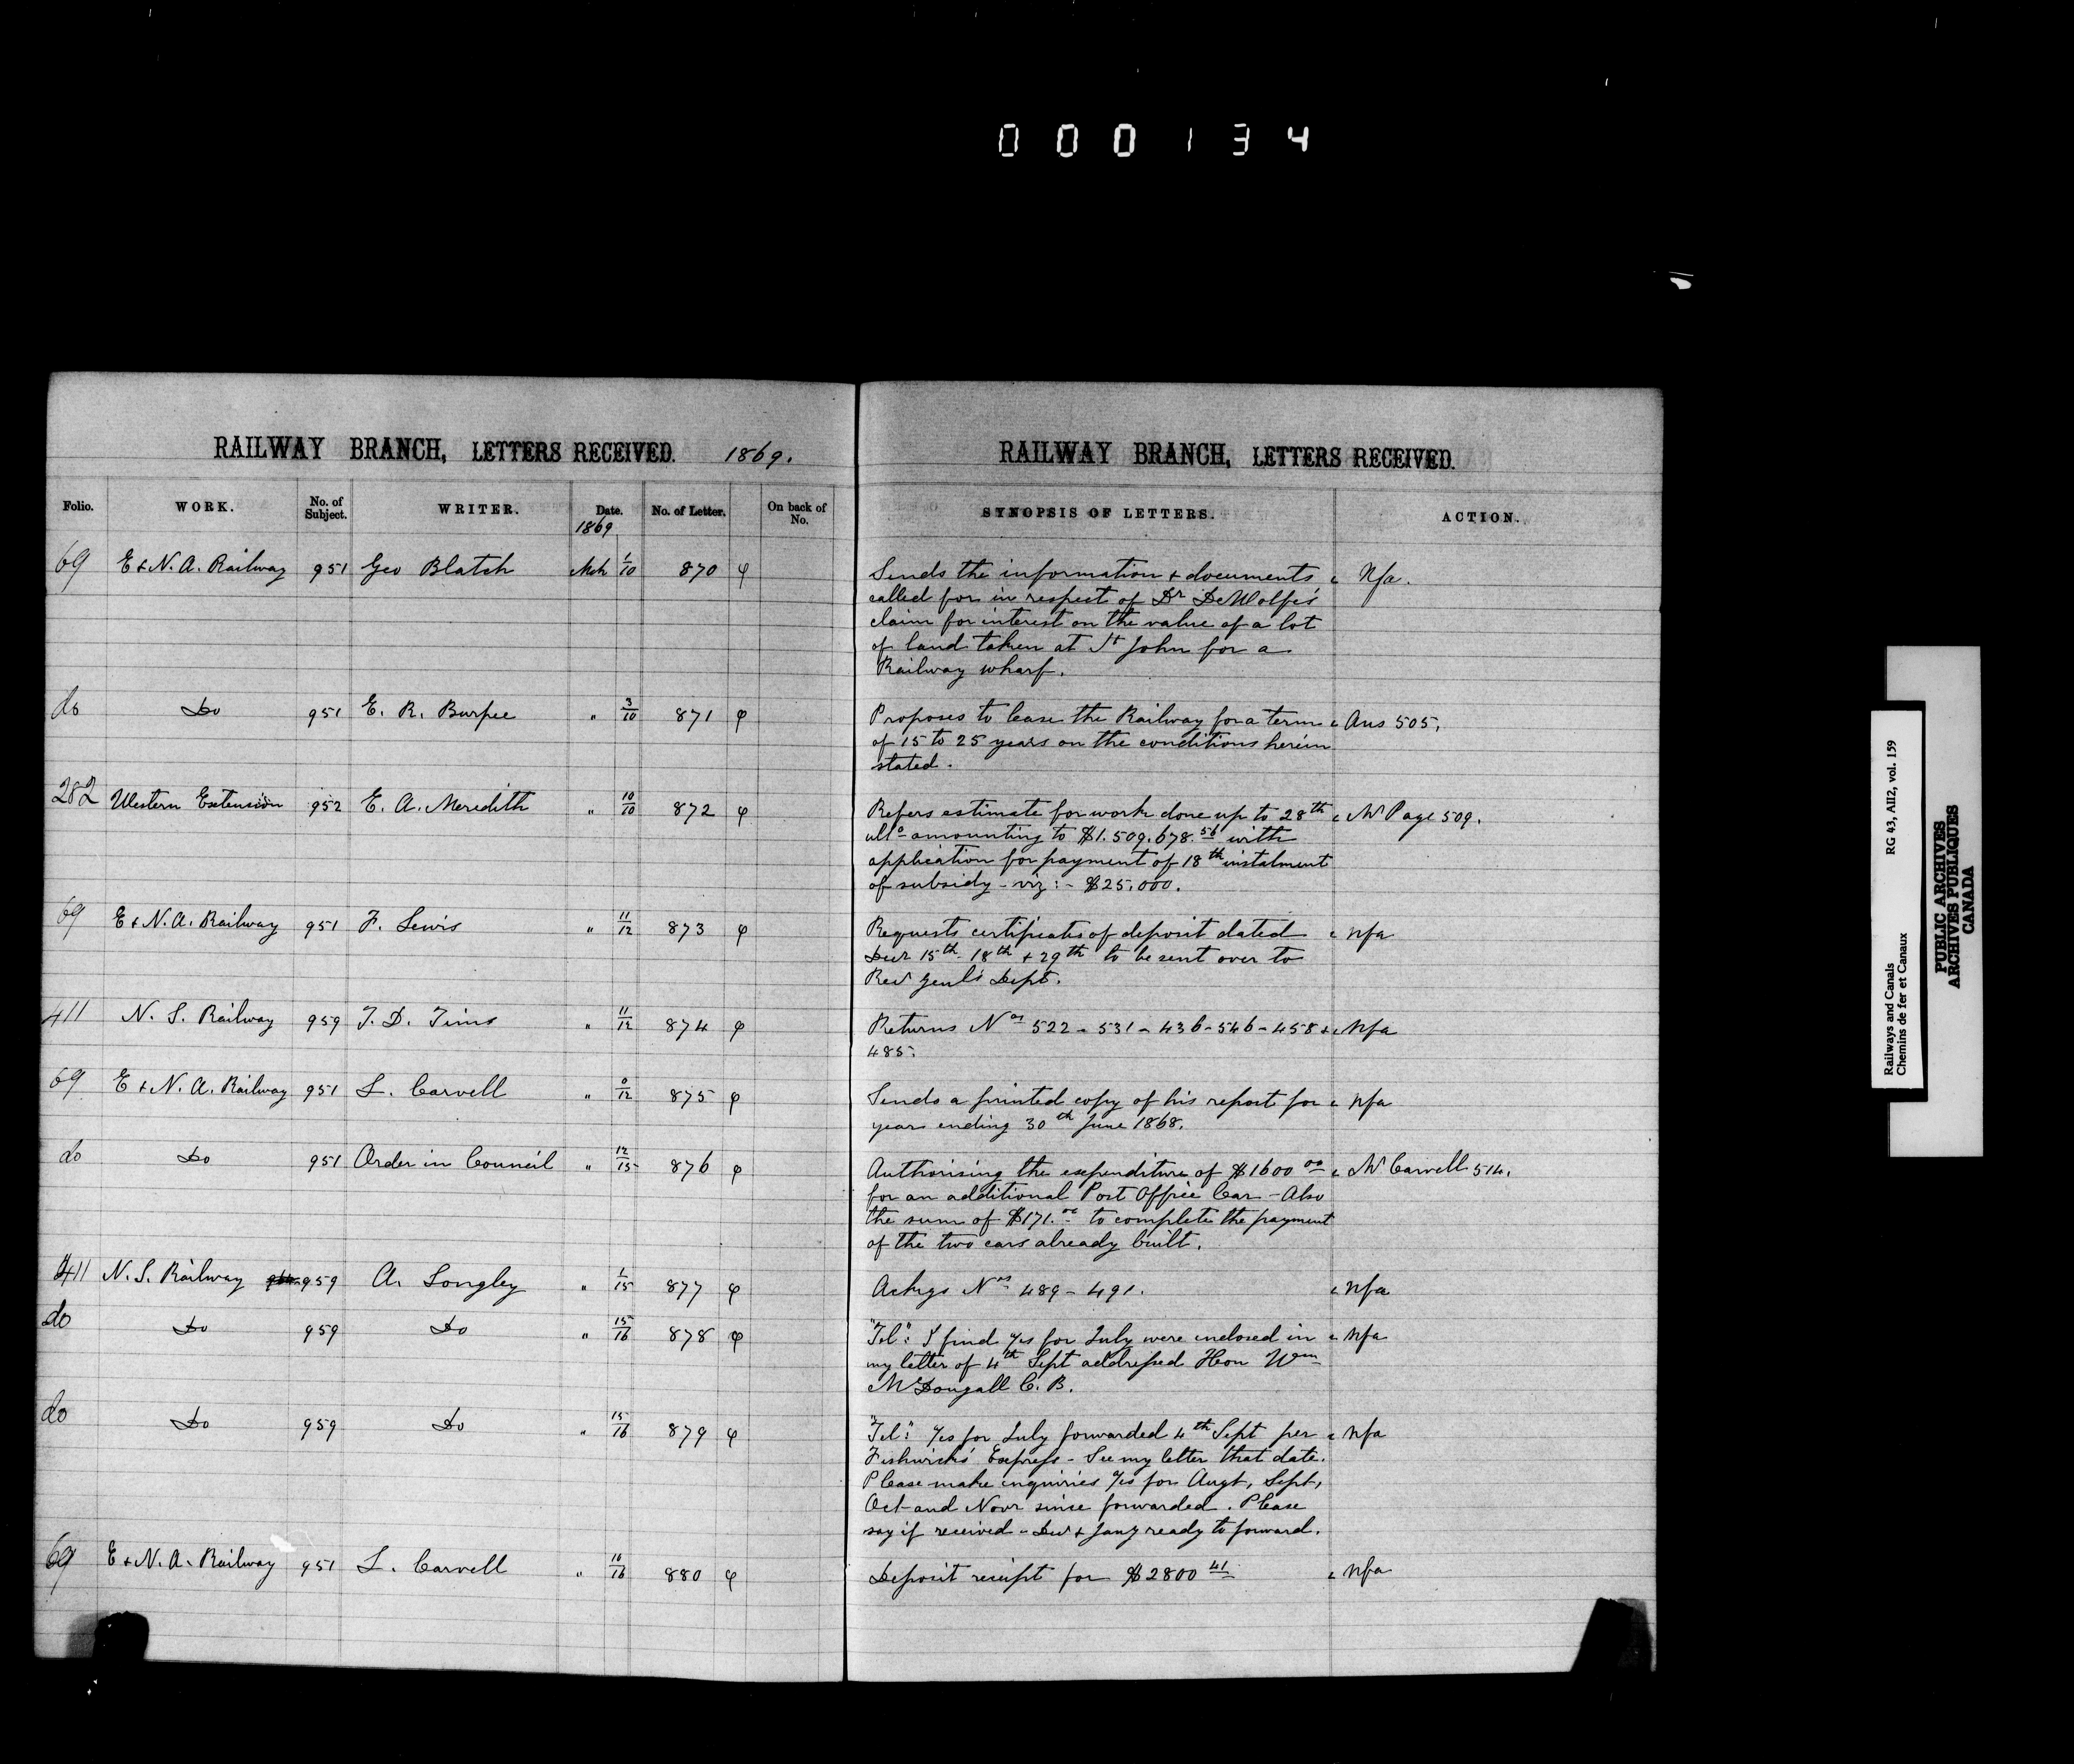 000134
RAILWAY BRANCH, LETTERS RECEIVED. 1869.
Folio. WORK. No. of Subject. WRITER. Date. No. of Letter. On back of No.
1869
69 E & N. A. Railway 951 Geo Blatch Mch 1/10 870 φ
do Do 951 E. R. Burpee " 3/10 871 φ
282 Western Extension 952 E. A. Meredith " 10/10 872 φ
69 E & N. A. Railway 951 F. Lewis " 11/12 873 φ
411 N. S. Railway 959 T. D. Tims " 11/12 874 φ
69 E & N. A. Railway 951 L. Carvell " 0/12 875 φ
do Do 951 Order in Council " 12/15 876 φ
411 N. S. Railway 959 A. Longley " 1/15 877 φ
do Do 959 Do " 15/16 878 φ
do Do 959 Do " 15/16 879 φ
69 E & N. A. Railway 951 L. Carvell " 10/16 880 φ
RAILWAY BRANCH, LETTERS RECEIVED.
SYNOPSIS OF LETTERS. ACTION.
Sends the information & documents Nfa.
called for in respect of Dr DeWolfe's
claim for interest on the value of a lot
of land taken at St John for a
Railway wharf.
Proposes to lease the Railway for a term Ans 505.
of 15 to 25 years on the conditions herein
stated.
Refers estimate for work done up to 28th Mr Page 509.
ulto amounting to $1.509.678.56 with
application for payment of 18th instalment
of subsidy - viz: - $25.000.
Requests certificates of deposit dated nfa
Decr 15th 18th & 29th to be sent over to
Recr Genl's Dept.
Returns Nos 522 - 531 - 436 - 546 - 458 & nfa
485.
Sends a printed copy of his report for nfa
year ending 30th June 1868.
Authorising the expenditure of $1600 00 Mr Carvell 514.
for an additional Post Office Car - Also
the sum of $171.00 to complete the payment
of the two cars already built.
Ackgs Nos 489 - 491. nfa
"Tel": I find %s for July were inclosed in nfa
my letter of 4th Sept addressed Hon Wm
McDougall C. B.
"Tel": %s for July forwarded 4th Sept per nfa
Fishwick's Express - See my letter that date.
Please make inquiries %s for Augt, Sept,
Oct and Novr since forwarded. Please
say if received - Decr & Jany ready to forward.
Deposit receipt for $2800 41 nfa
Railways and Canals RG 43, AII2, vol. 159
Chemins de fer et Canaux
PUBLIC ARCHIVES
ARCHIVES PUBLIQUES
CANADA